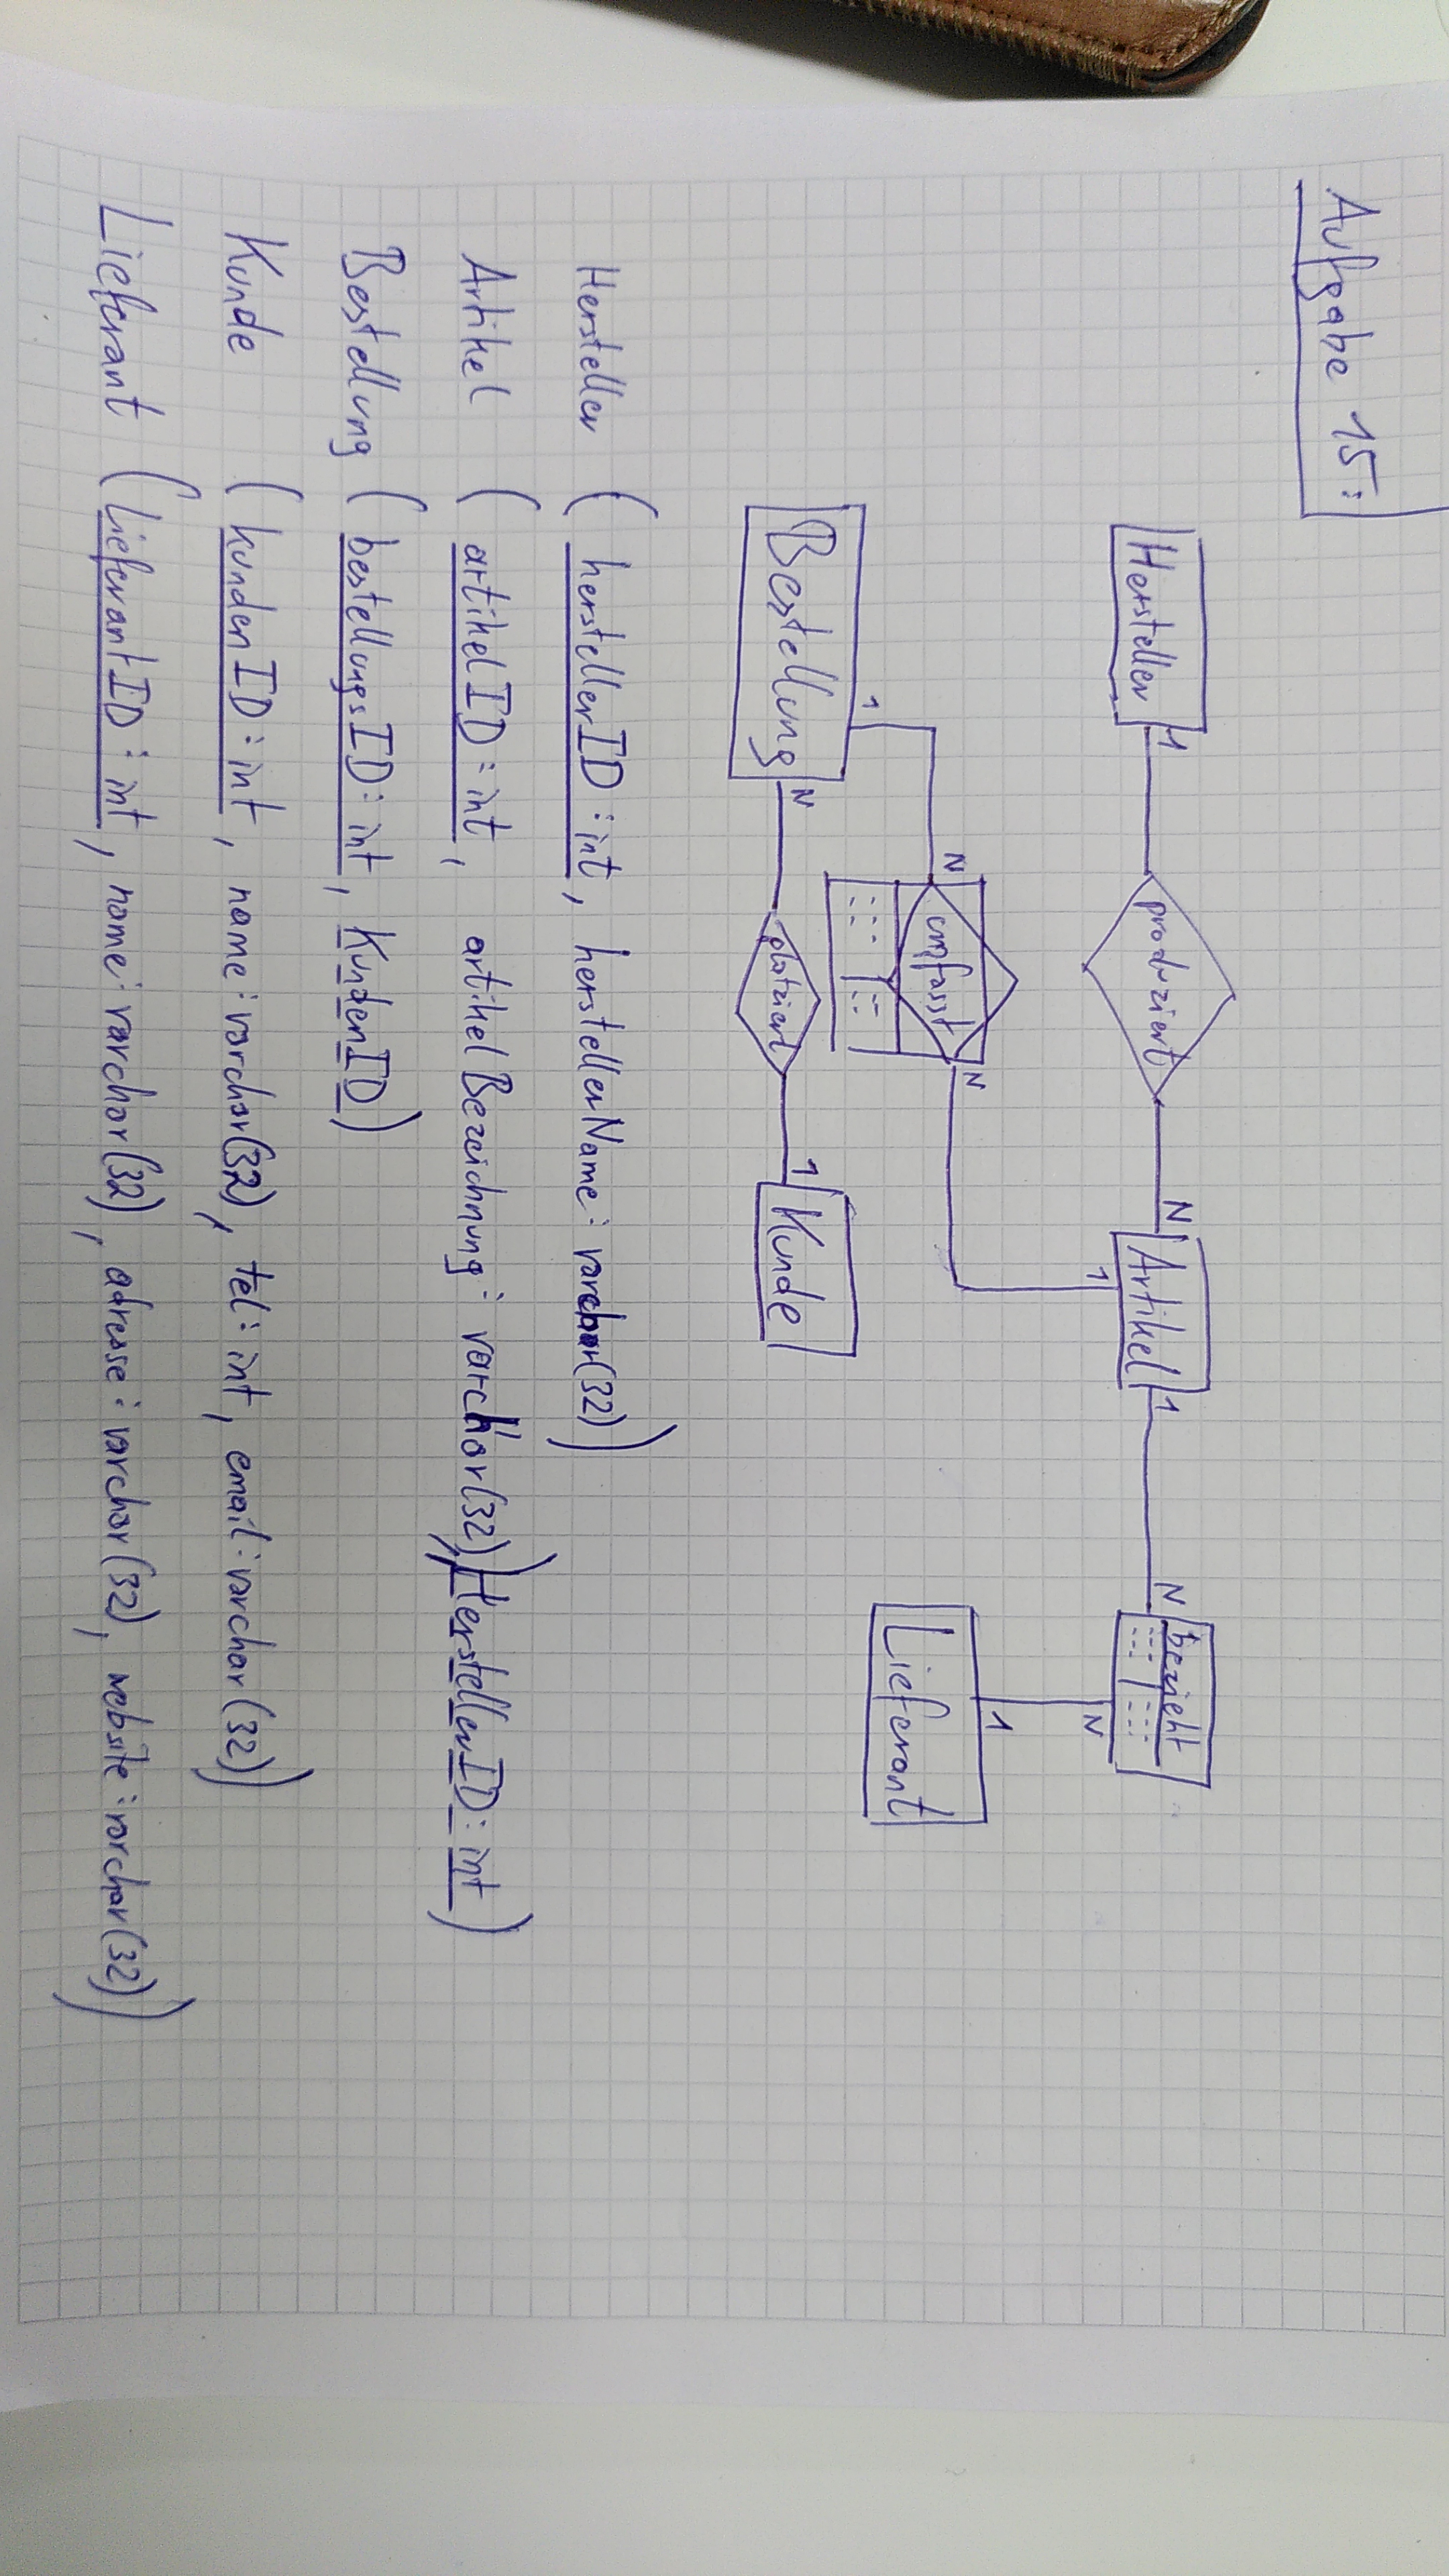 Aufgabe 15:
Hersteller 1 produziert N Artikel 1 N bezieht
1 N
N umfasst N 1
1 Lieferant
Bestellung N platziert 1 Kunde
Hersteller (herstellerID : int, herstellerName : varchar(32))
Artikel (artikelID : int, artikelBezeichnung : varchar(32),) HerstellerID : int)
Bestellung (bestellungsID : int, KundenID)
Kunde (kundenID : int, name : varchar(32), tel : int, email : varchar(32))
Lieferant (LieferantID : int, name : varchar(32), adresse : varchar(32), website : varchar(32))